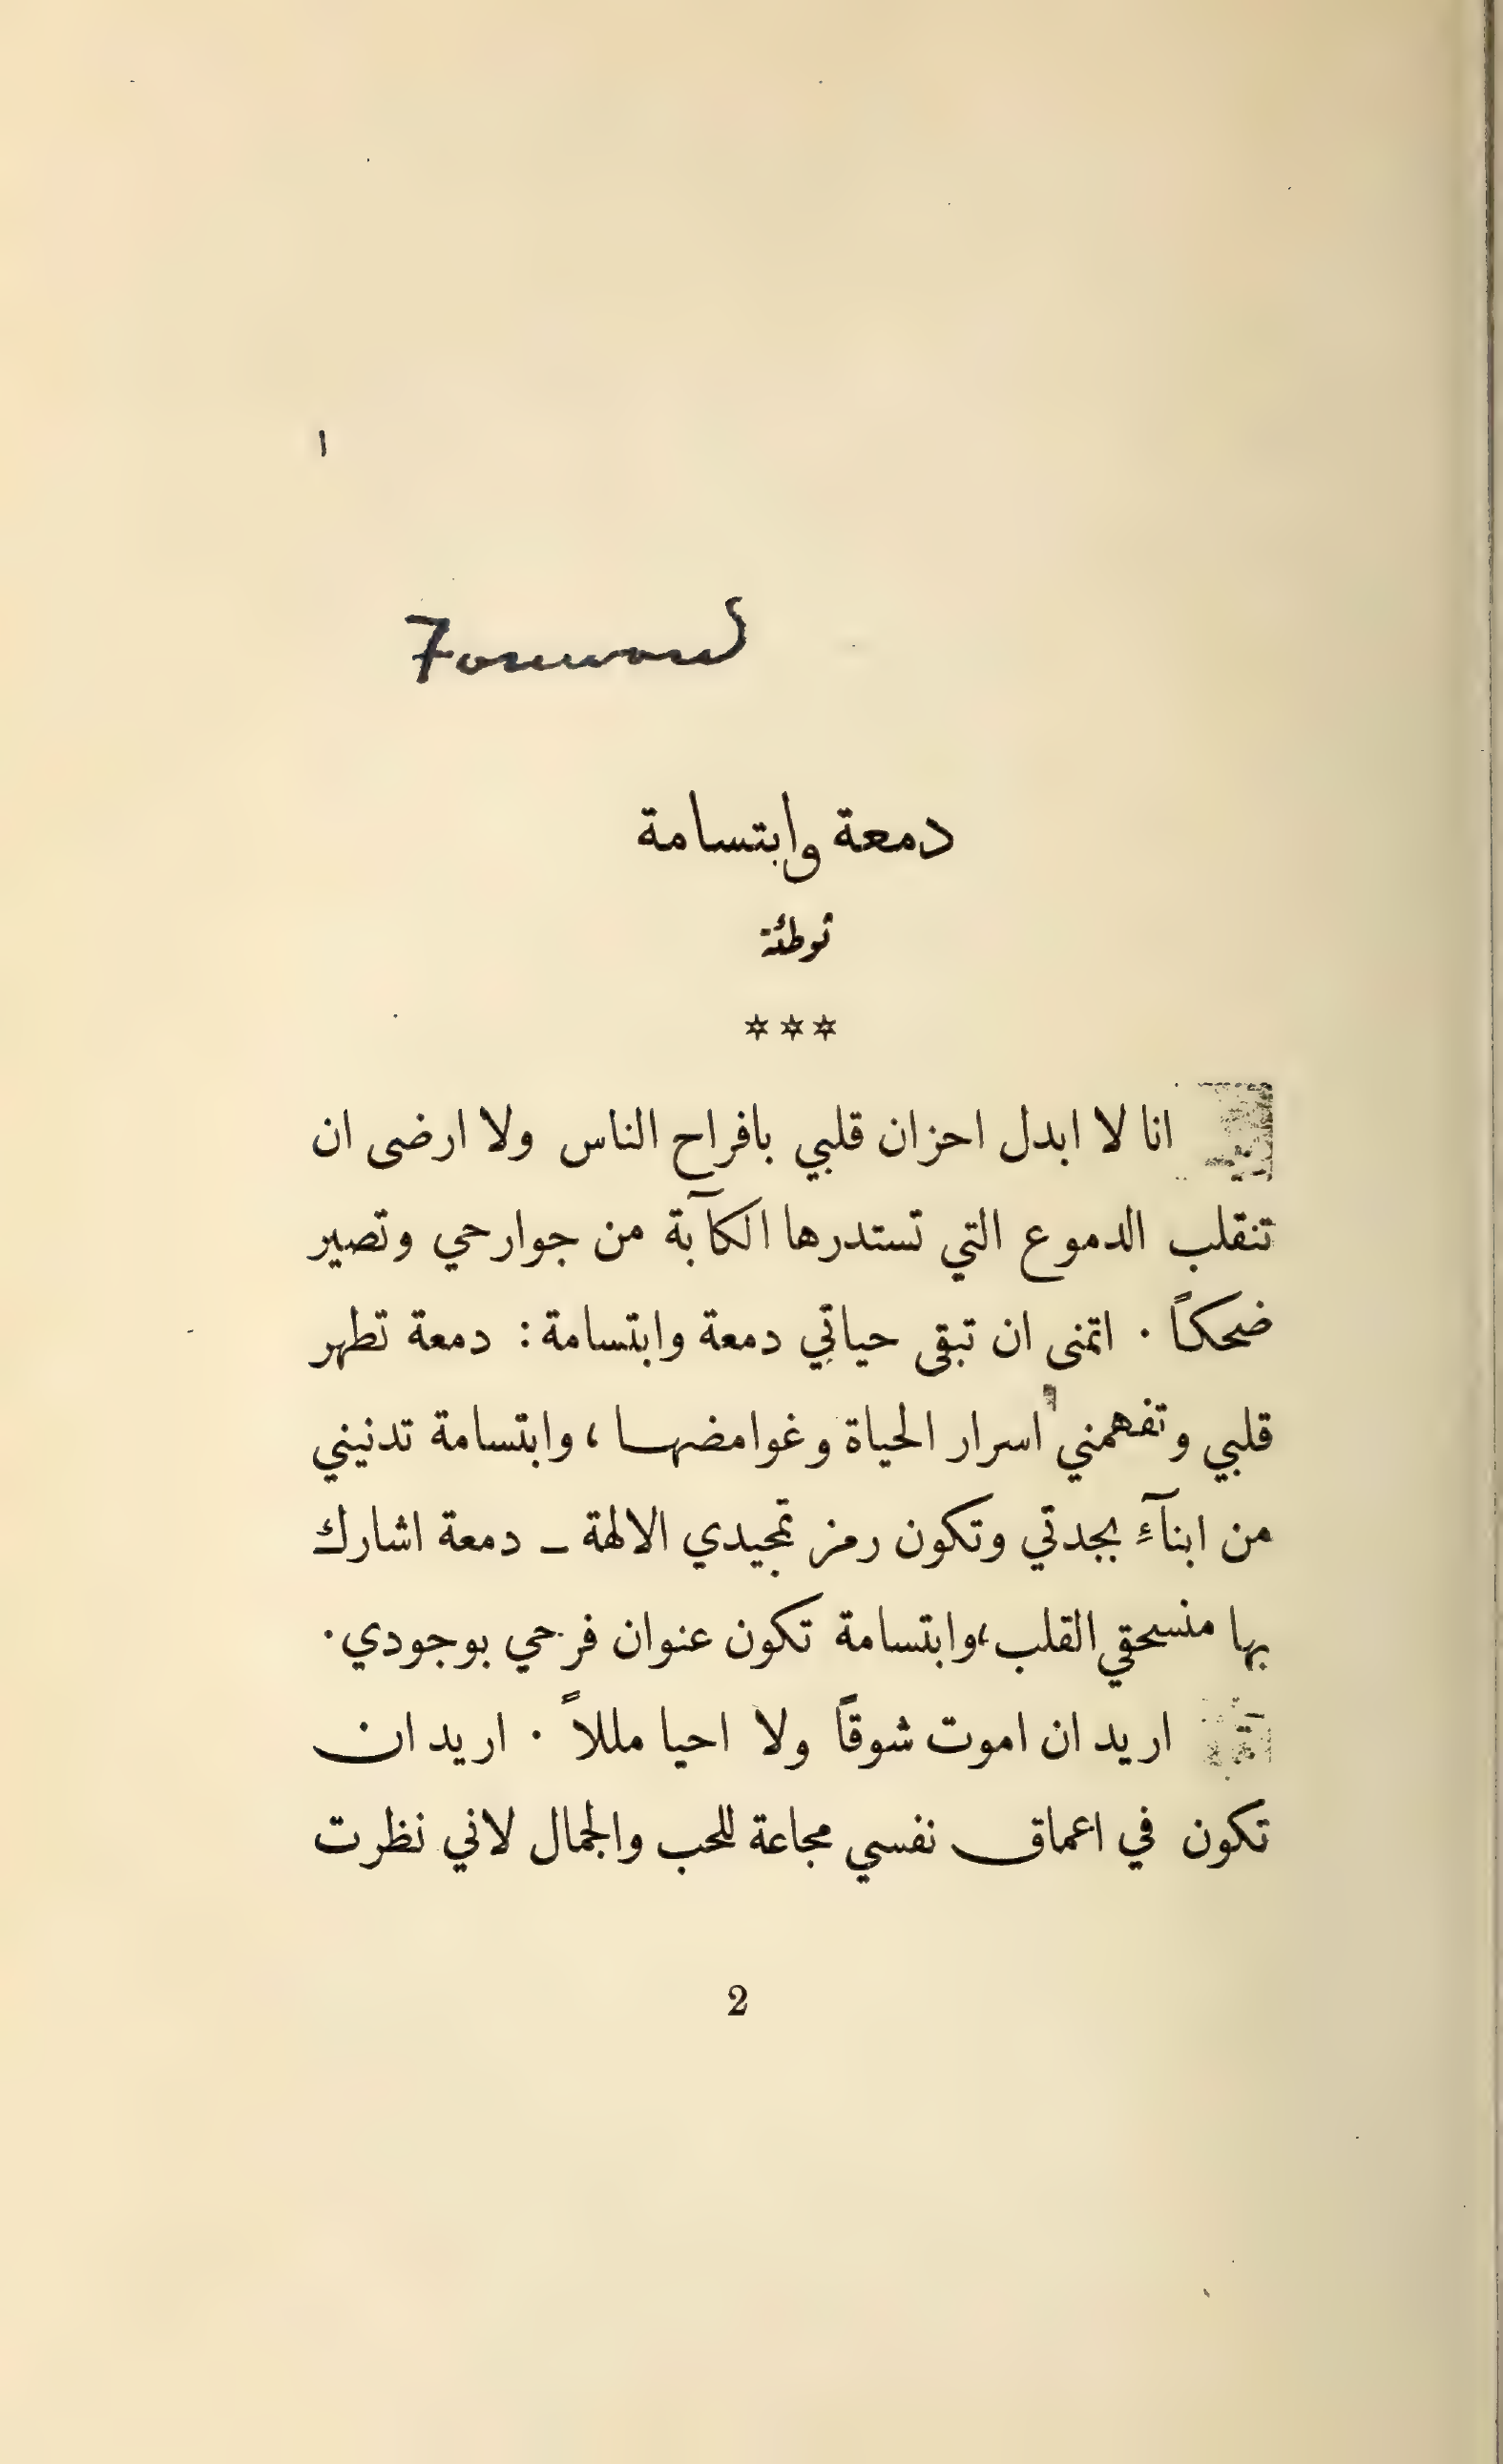 ١
Foreword
دمعة وابتسامة
توطئة
***
انا لا ابدل احزان قلبي بافراح الناس ولا ارضى ان
تنقلب الدموع التي تستدرها الكآبة من جوارحي وتصير
ضحكاً ٠ اتمنى ان تبقى حياتي دمعة وابتسامة : دمعة تطهر
قلبي وتفهمني اسرار الحياة وغوامضها ، وابتسامة تدنيني
من ابنآء بجدتي وتكون رمز تمجيدي الالهة ـ دمعة اشارك
بها منسحقي القلب ، وابتسامة تكون عنوان فرحي بوجودي ٠
اريد ان اموت شوقاً ولا احيا مللاً ٠ اريد ان
تكون في اعماق نفسي مجاعة للحب والجمال لاني نظرت
2